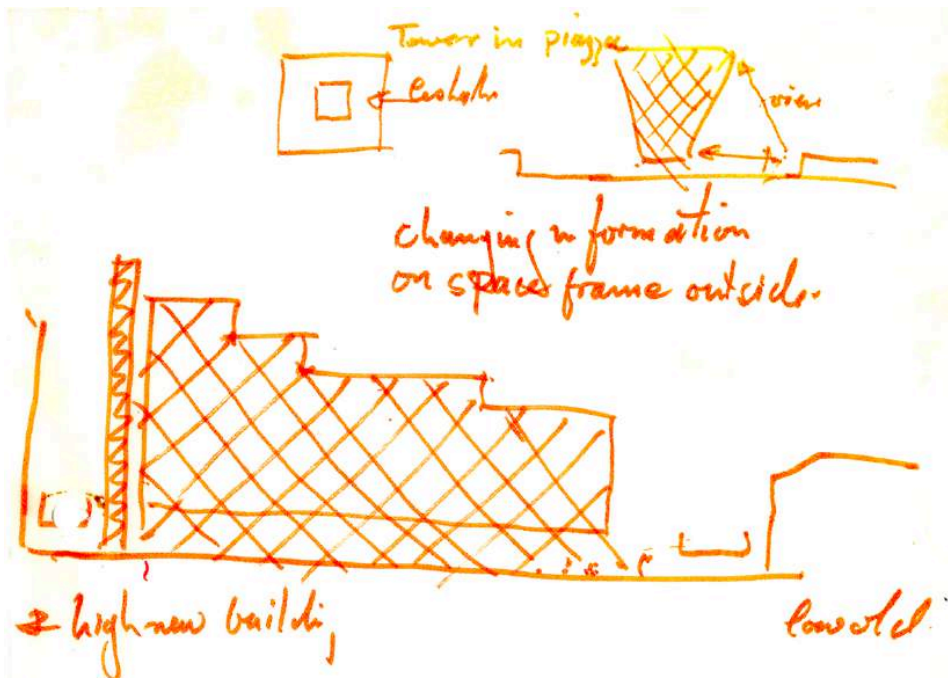 Tower in piazza
view
changing information
on space frame outside.
high new buildi,
low old